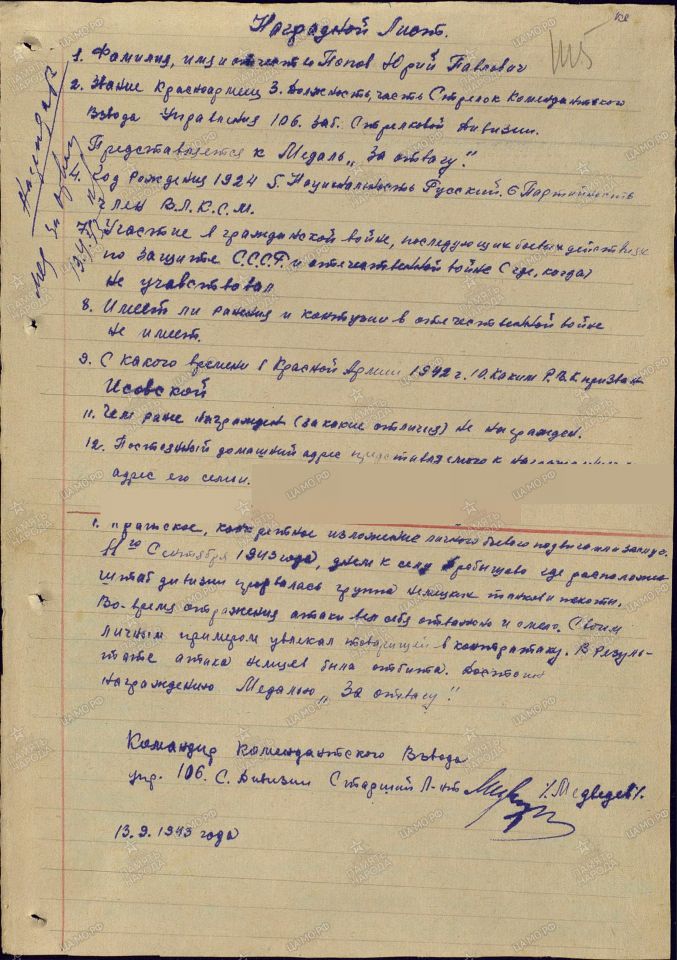 Наградной Лист.
1. Фамилия, имя и отчество Попов Юрий Павлович
2. Звание Красноармеец 3. Должность, часть Стрелок Комендантского
Взвода Управления 106. Заб. Стрелковой Дивизии.
Представляется к Медаль „За отвагу."
4. Год рождения 1924 5. Национальность Русский. 6 Партийность
член В.Л.К.С.М.
7. Участие в гражданской войне, последующих боевых действиях
по защите С.С.С.Р. и отечественной войне (где, когда)
не учавствовал
8. Имеет ли ранения и контузии в отечественной войне
не имеет.
9. С какого времени в Красной Армии 1942 г. 10. Каким Р.В.К. призван
Исовской
11. Чем ране награжден (за какие отличия) не награжден.
12. Постоянный домашний адрес представляемого к
адрес его семьи.
1. конкретное изложение личного боевого подвига или заслуг.
11го Сентября 1943 года, днем к селу где расположен
штаб дивизии прорвалась группа немецких танков и пехоты.
Во-время отражения атаки вел себя отважно и смело. Своим
личным примером увлекал товарищей в контратаку. В резуль-
тате атака немцев была отбита. Достоин
награждению Медалью „За отвагу"!
Командир Комендантского Взвода
упр. 106. С. Дивизии Старший Л-нт /Медведев/.
13.9.1943 года
Мед За Отвагу
ПАМЯТЬ НАРОДА
ЦАМО.РФ